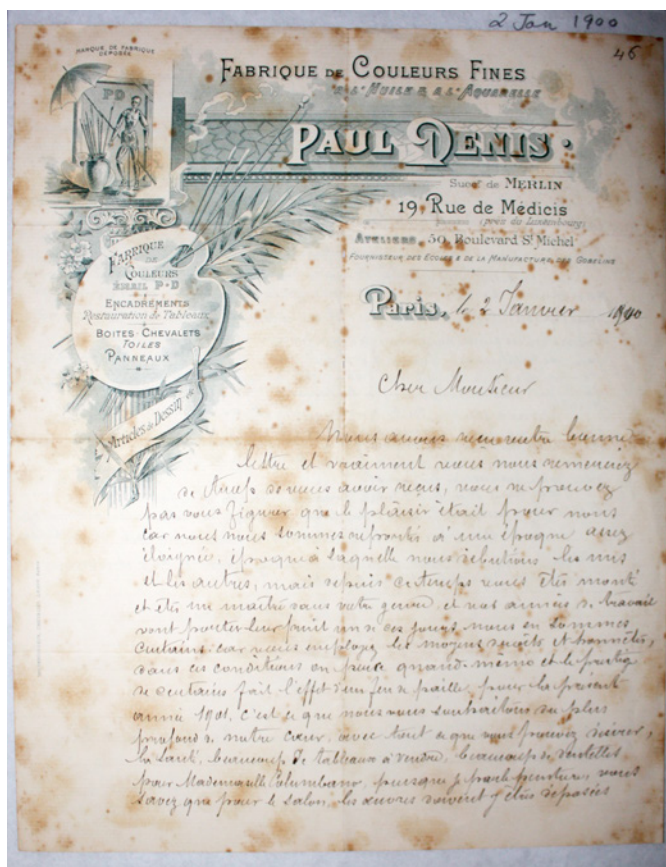 2 Jan 1900
46
MARQUE DE FABRIQUE
DÉPOSÉE
PD
FABRIQUE DE COULEURS FINES
A L'HUILE & A L'AQUARELLE
PAUL DENIS
Succr de MERLIN
19, Rue de Médicis
(près du Luxembourg)
ATELIERS, 30, Boulevard St Michel
FOURNISSEUR DES ECOLES & DE LA MANUFACTURE DES GOBELINS
FABRIQUE
DE
COULEURS
EMAIL P·D
ENCADREMENTS
Restauration de Tableaux
BOITES·CHEVALETS
TOILES
PANNEAUX
Articles de Dessin
Paris, le 2 Janvier 1900
Cher Monsieur
Nous avons reçu votre bonne
lettre et vraiment vous nous remerciez
de vous avoir reçus, vous ne pouvez
pas vous figurer que le plaisir était pour nous
car nous nous sommes à une époque assez
éloignée, époque à laquelle nous débutions les uns
et les autres, mais depuis ce temps vous êtes monté
et êtes un maître dans votre genre, et vos années de travail
vont porter leur fruit un de ces jours nous en sommes
certains car vous employez les moyens droits et honnêtes,
dans ces conditions on perce quand même et le prestige
de certains fait l'effet d'un feu de paille, pour la présente
année 1901, c'est ce que nous vous souhaitons du plus
profond de notre cœur, avec tout ce que vous pouvez désirer,
la santé, beaucoup de tableaux à vendre, beaucoup de
pour Mademoiselle Columbano, puisque je parle peinture, vous
savez que pour le salon les œuvres doivent y être déposées